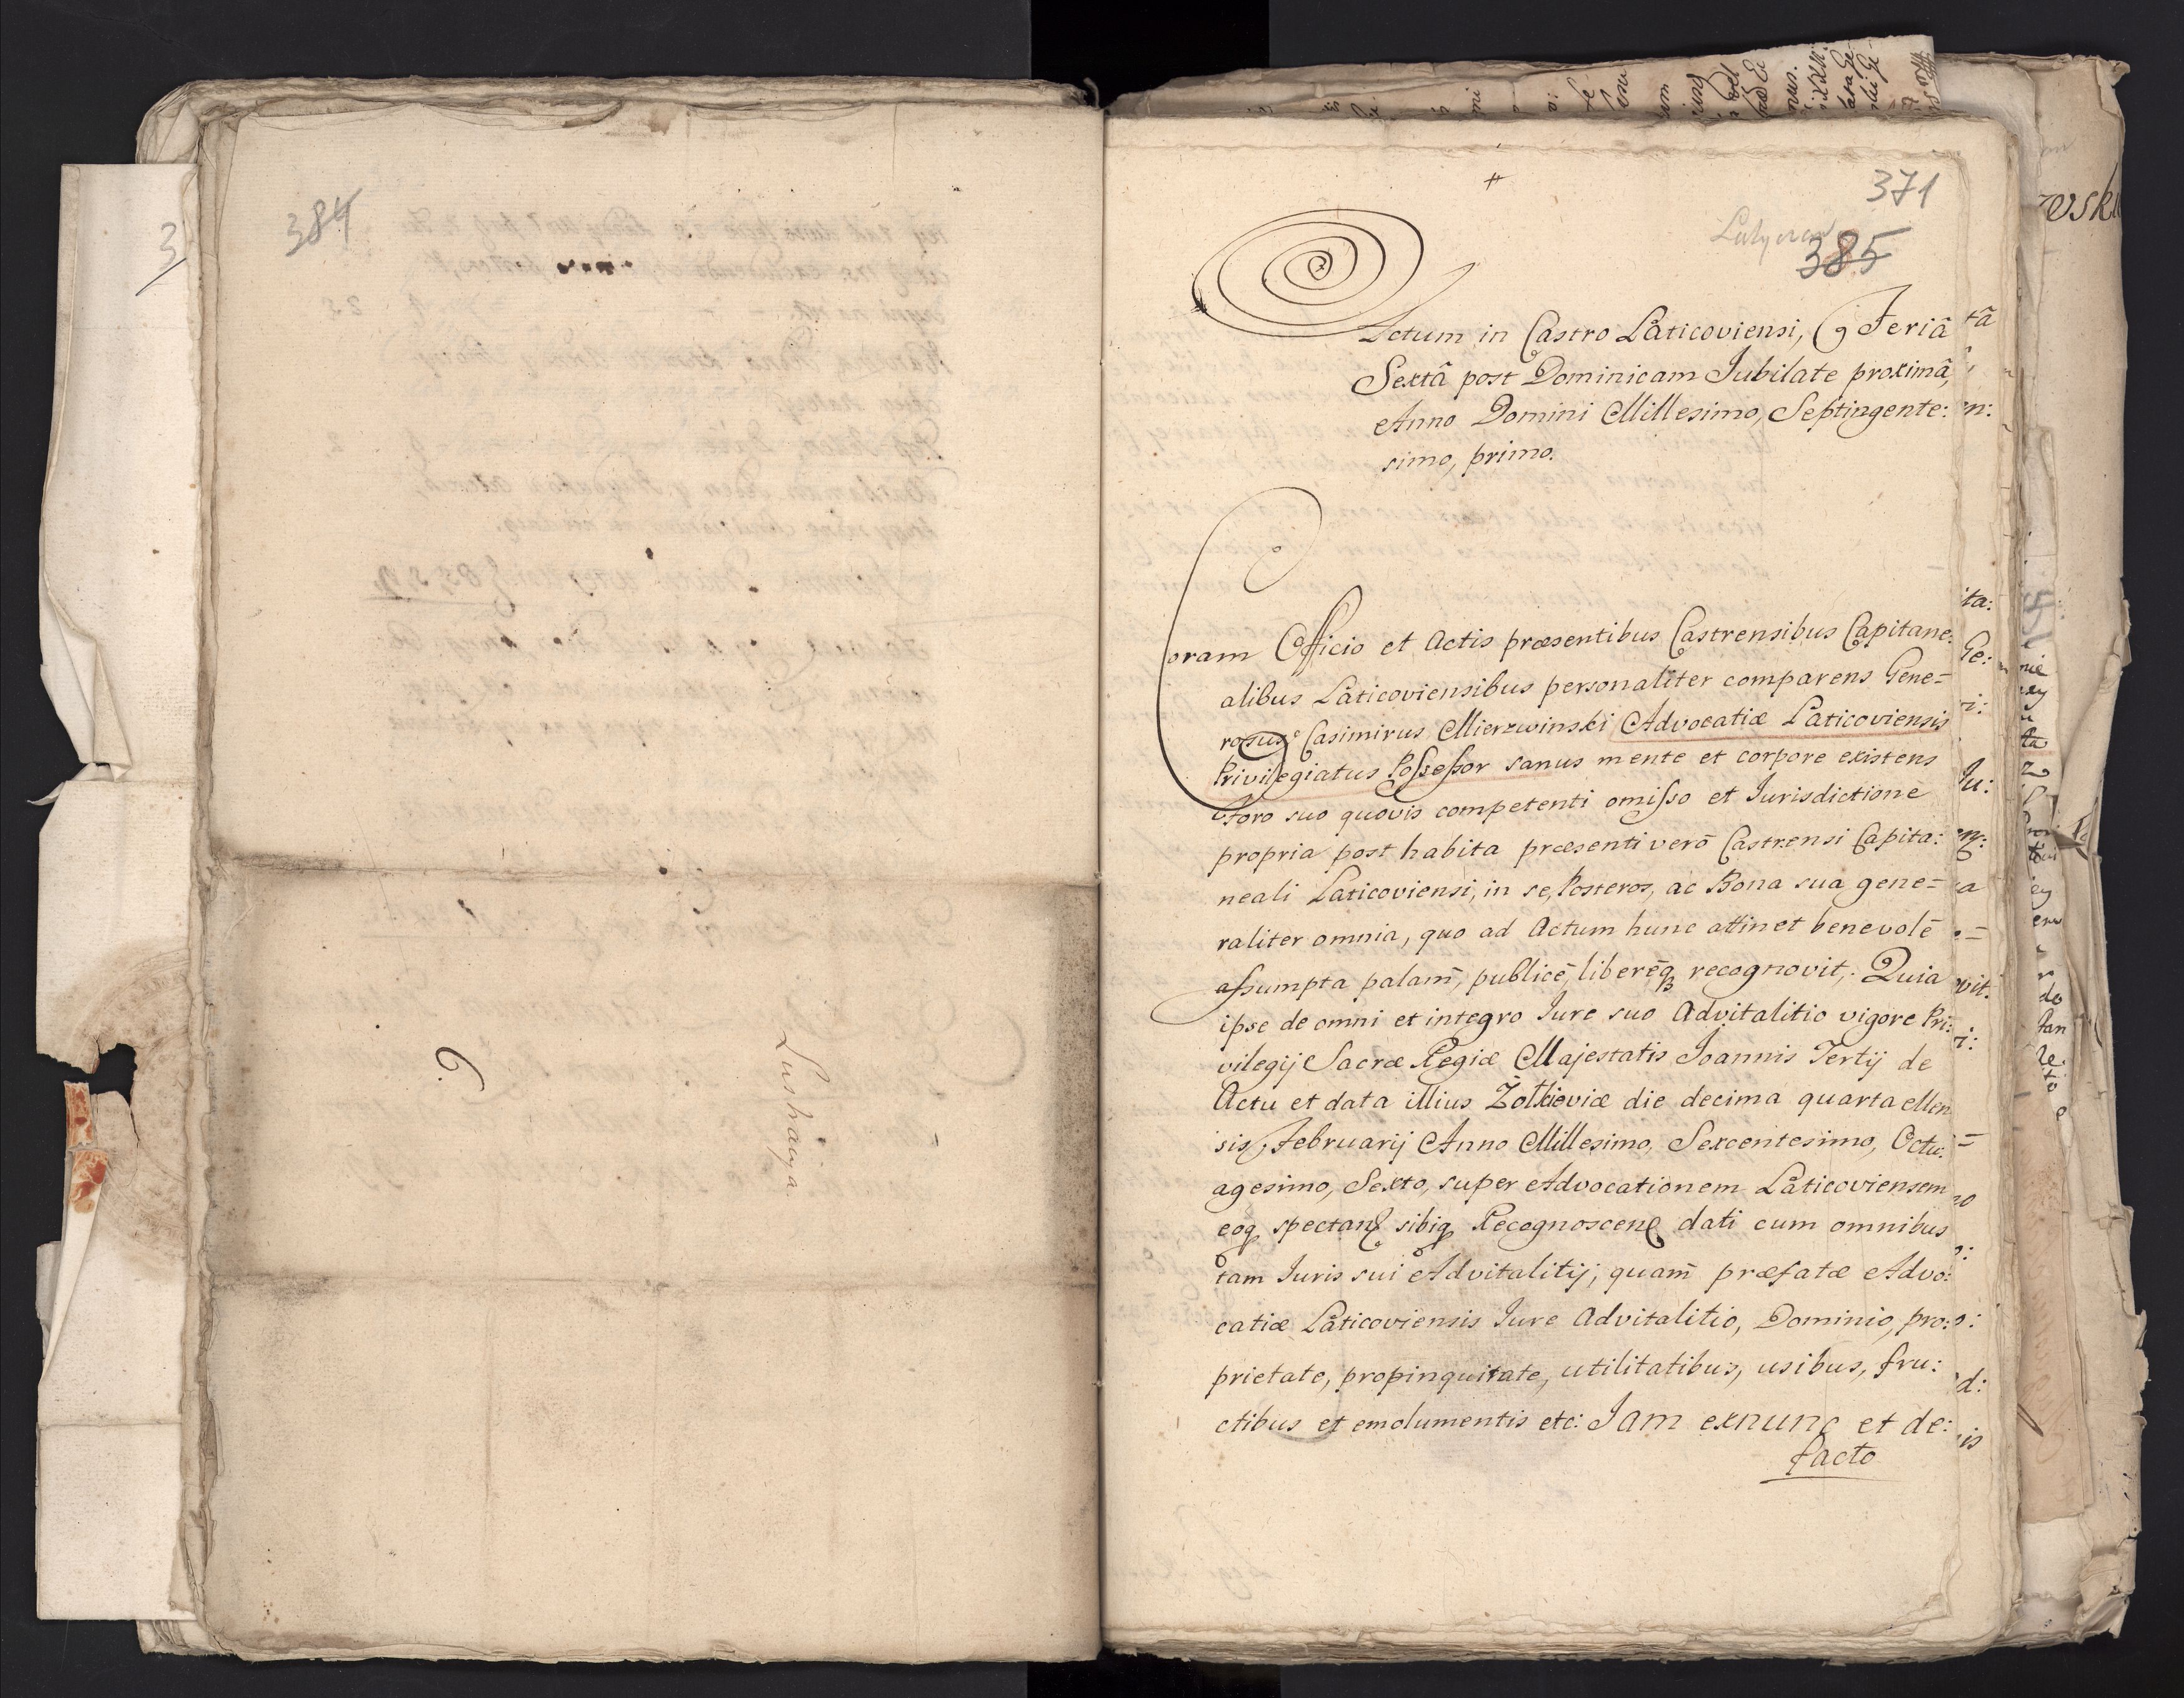 384
6
Lushacya
371
385
Actum in Castro Laticoviensi, Feriâ
Sextâ post Dominicam Jubilate proximâ,
Anno Domini Millesimo, Septingente:
simo, primo.
Coram Officio et Actis præsentibus Castrensibus Capitane:
alibus Laticoviensibus personaliter comparens Gene=
rosus Casimirus Mierzwinski Advocatiæ Laticoviensis
Privilegiatus Possessor sanus mente et corpore existens
Foro suo quovis competenti omisso et Jurisdictione
propria post habita præsenti verō Castrensi Capita:
neali Laticoviensi, in se, Posteros, ac Bona sua gene=
raliter omnia, quo ad Actum hunc attinet benevolē
assumpta palam̄, publicē, liberēq recognovit, Quia
ipse de omni et integro Jure suo Advitalitio vigore Pri:
vilegij Sacræ Regiæ Majestatis Joannis Tertij de
Actu et data illius Zolkieviæ die decima quarta Men
sis, Februarij Anno Millesimo, Sexcentesimo, Octu:
agesimo, Sexto, super Advocationem Laticoviensem
eoq spectan sibiq Recognoscen dati cum omnibus
tam Juris sui Advitalitij, quam̄ præfatæ Advo:
catiæ Laticoviensis Jure Advitalitio, Dominio, pro:
prietate, propinquitate, utilitatibus, usibus, fru:
ctibus et emolumentis etc: Jam exnunc et de:
facto